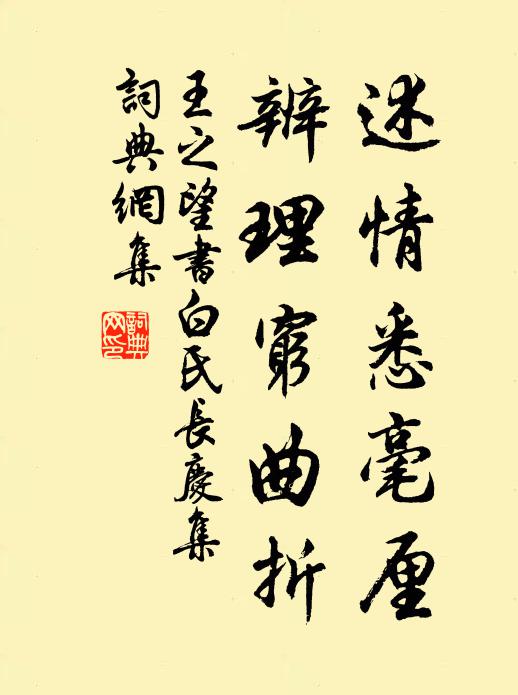 述情悉毫厘
辨理窮曲折
王之望書白氏長慶集
詞典網集
詞典網印